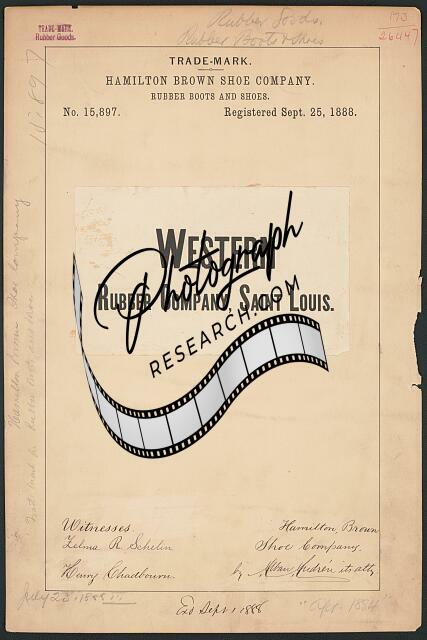 TRADE-MARK.
Rubber Goods.
Rubber Goods.
Rubber Boots & Shoes
173
26447
TRADE-MARK.
HAMILTON BROWN SHOE COMPANY.
RUBBER BOOTS AND SHOES.
No. 15,897.
Registered Sept. 25, 1888.
15897
WESTERN
RUBBER COMPANY, SAINT LOUIS.
Photograph
RESEARCH.COM
Hamilton Brown Shoe Company
Witnesses.
Zelma R. Schelin
Henry Chadbourn.
Hamilton, Brown
Shoe Company.
by
its atty
July 23, 1888
"Apr. 1884"